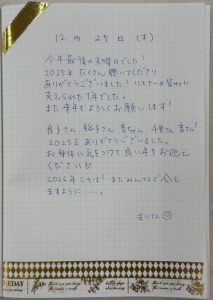 12月25日(木)
今年最後の木曜日でした!
2025年 たくさん聴いてくださり
ありがとうございました! リスナーの皆さんに
支えられた1年でした。
また来年もよろしくお願いします!
良子さん 裕子さん 杏ちゃん 千里さん 杏さん!
2025年 ありがとうございました。
お身体に気をつけて良い年をお迎え
ください♡
2026年こそは! またみんなで会え
ますように……。
まりたん